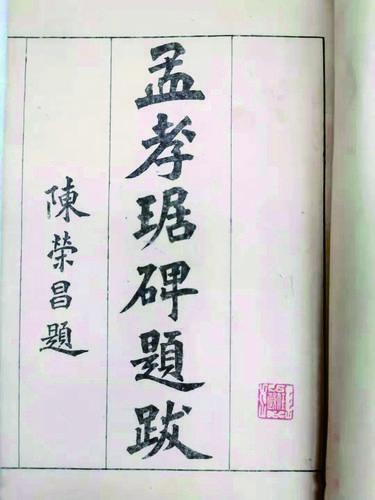 孟孝琚碑題跋
陳榮昌題